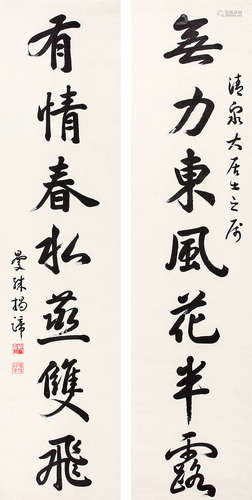 清泉大居士之属
無力東風花半露
有情春水燕雙飛
曼殊揭諦